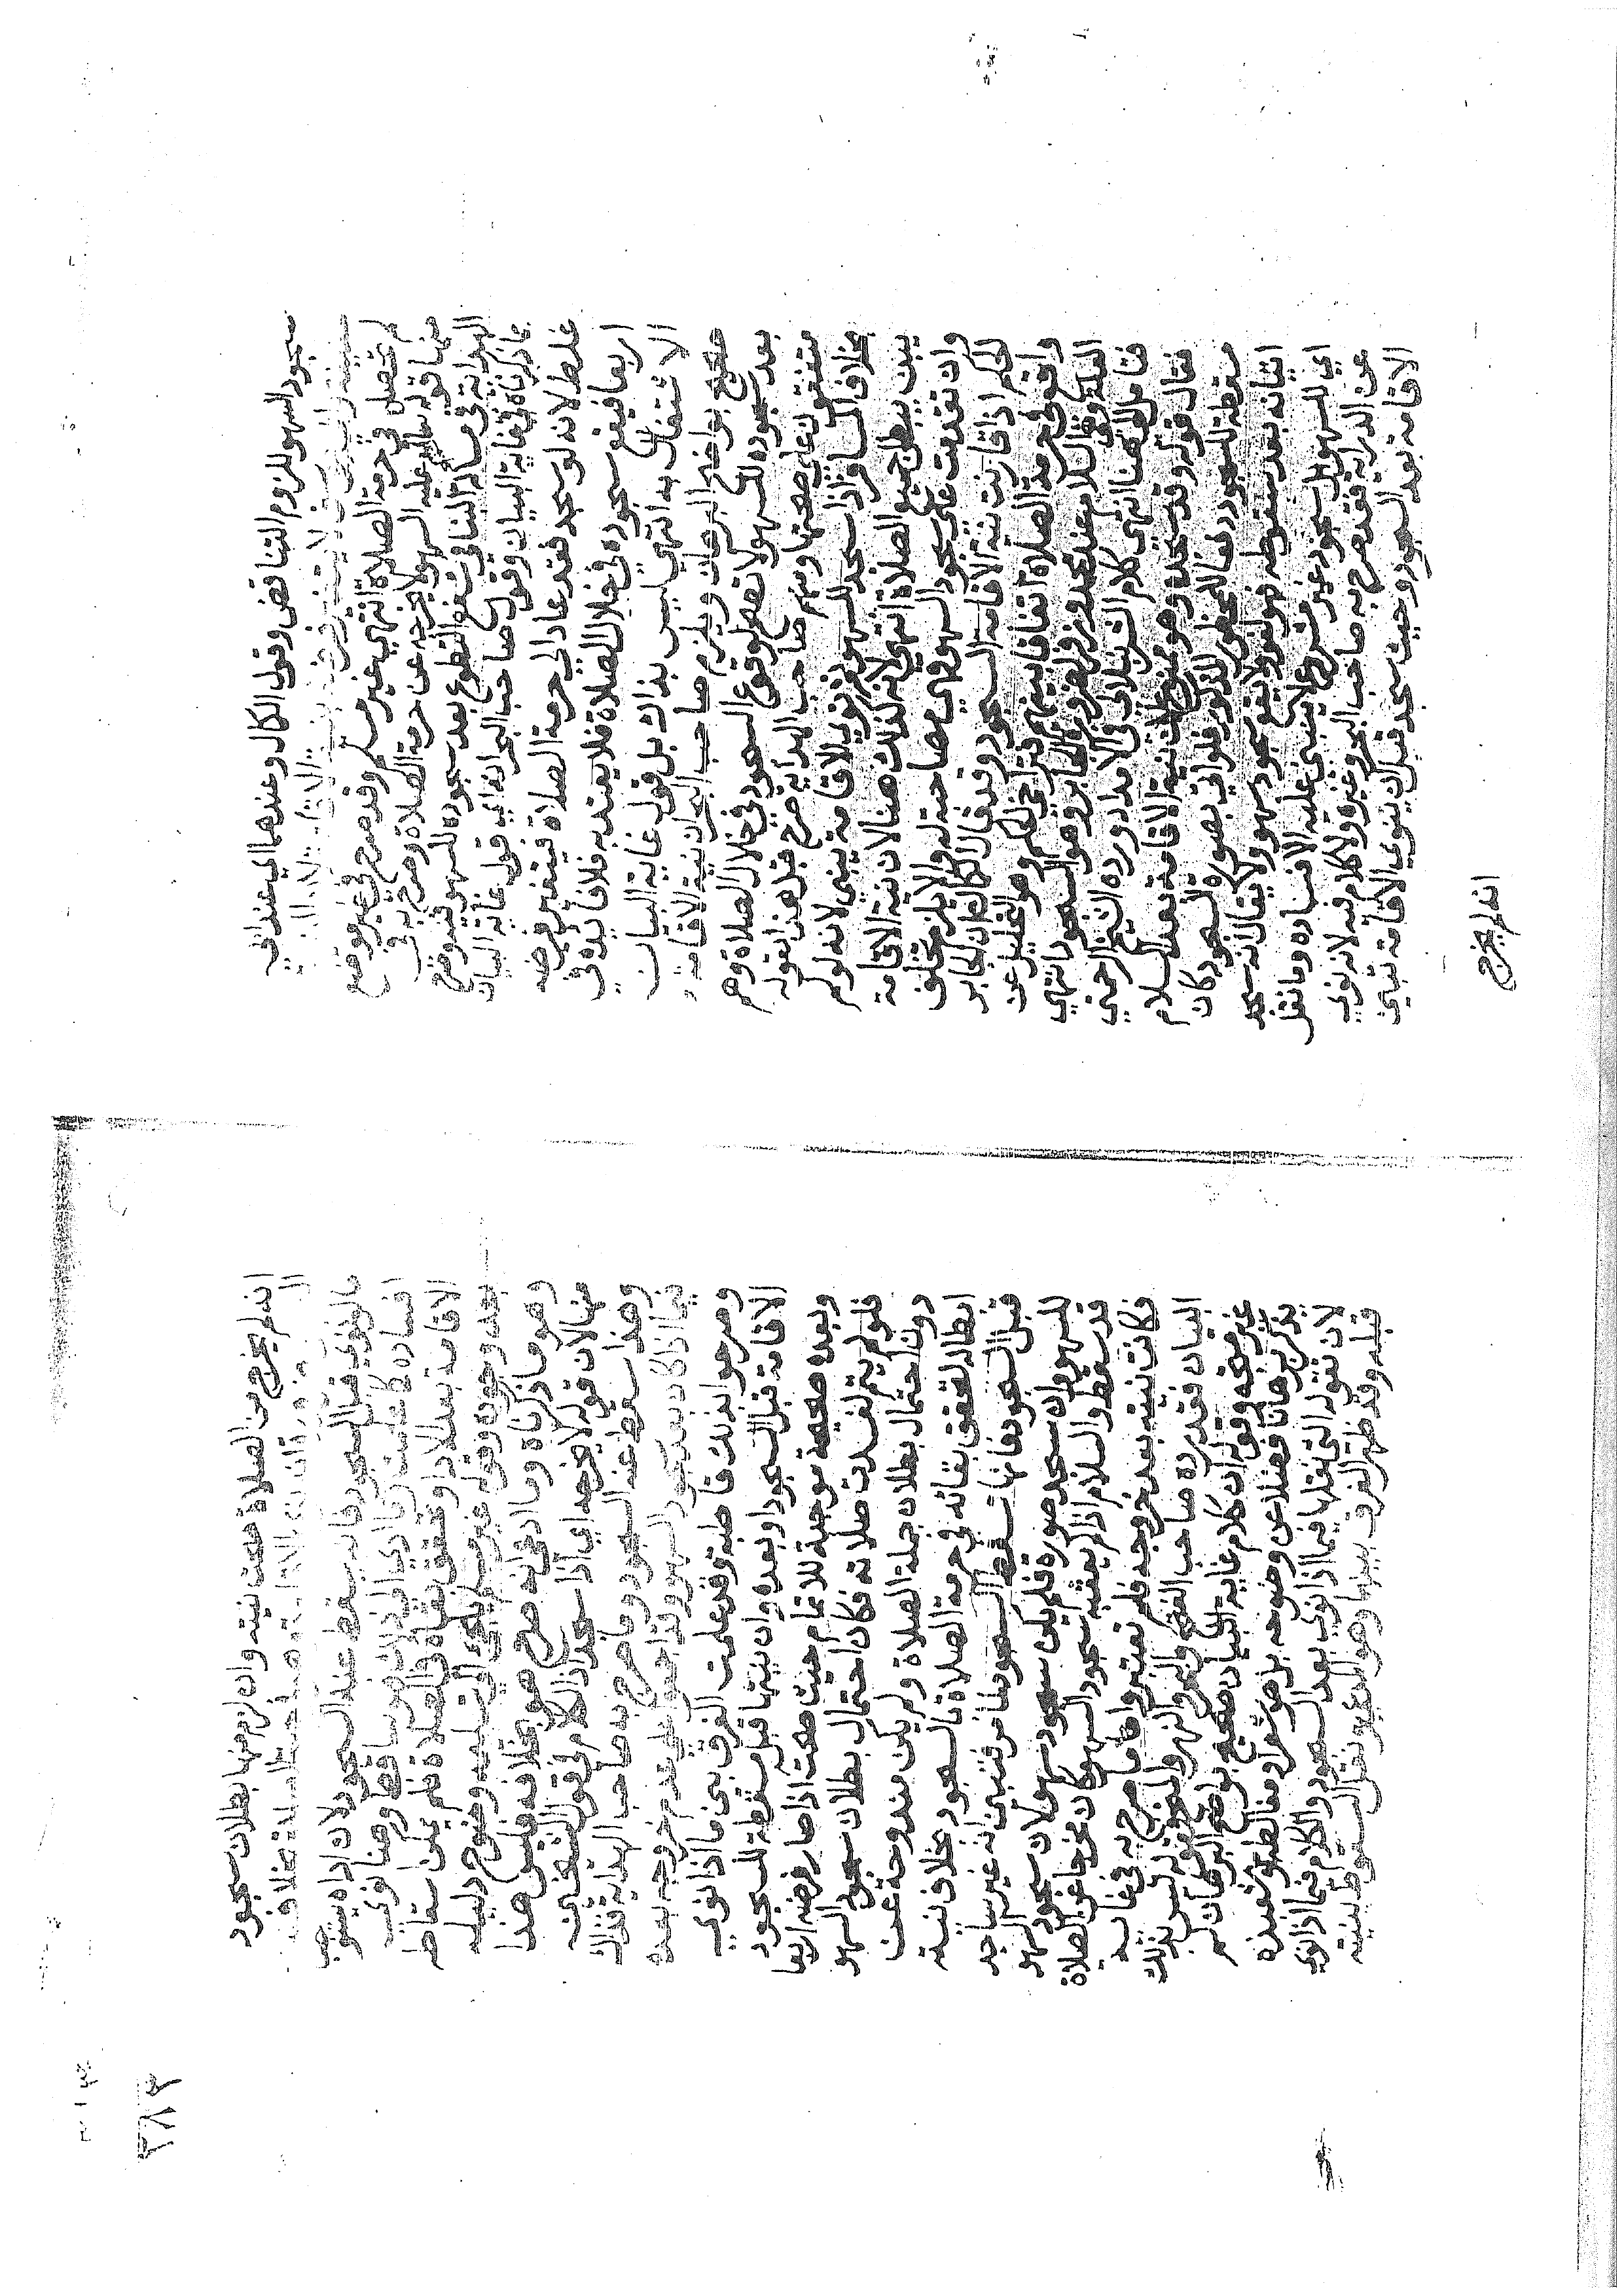 سجود السهو للزوم التناقض وقول الكمال وعندهما اي عند ابي
لم تحصل في حرمة الصلاة انتهى غير مسلم وقد صرح في غير موضع
منها قوله عليه السهو لا يخرجه عن حرمة الصلاة وصرح به في
الهداية في مسألة البناء في شفع التطوع بعد سجوده للسهو فيه وضح
بما ذكرناه في غاية البيان وقول صاحب البحر انه اي قول غاية البيان
غلط لانه لو سجد فقد عاد الى حرمة الصلاة فيتغير فرضه
اربعا فيقع سجوده في خلال الصلاة فلا يعتد به فلا فائدة في
الاشتغال به انتهى ليس بذاك بل قول غاية البيان
صحيح بواضح البرهان ويلزم صاحب البحر ان نية الاقامة
بعد سجوده للسهو لا تصح لوقوع السجود في خلال الصلاة وهم
متفقون على صحتها ومنهم صاحب الهداية صرح قبل هذا بقوله
بخلاف المسافر اذا سجد للسهو ثم نوى الاقامة يبني لانه لو لم
يبن يبطل جميع الصلاة انتهى لانه كذلك هنا لان نية الاقامة
وان تقدمت على سجود السهو فهي مصاحبة له والا يلزم تخلف
الحكم اذا قارنت نية الاقامة السجود وقد قال الكمال ان الجابر
واقع في حرمة الصلاة اتفاقا بينهم فتراخى الحكم وهو التحليل عن
العلة وهي السلام عند محمد وزفر لضرورة الجابر وهو السجود انتهى
فتأمل منصفا انتهى كلام الشرنبلالي في الامداد ورده الشيخ احمد
فقال قوله وقد سجد وهو ممنوع لان نية الاقامة بعد السلام
مسقطة للسجود دفعا للمحظور المذكور فلو اتى بصورة السجود كان
اتيانه بعد سقوطه فهو لغو ولا يقع سجود سهو ولا يقال انه سجد
اي للسهو بل سجود غير مشروع لا ينبني عليه الا فساده وما نقل
عن الدراية فقد صرح به صاحب البحر وغيره ولا كلام فيه لانه نوى
الاقامة بعد السجود وحيث سجد قبل ان ينوي الاقامة تبين
انه لم يخرج
انه لم يخرج من الصلاة صحت نيته وان لزم منها بطلان سجود
ما لو نوى قبل السجود فانه يسقط عند السجود لان اداه يستوجب
افساده كما علمت وما ادى الى ذلك فهو ساقط وهنا نوى
الاقامة بعد الاداء وتحقق بقاءه في الصلاة فلم يمكن اسقاط
بعده وجوده وقوله فهو صريح اي تسليمه وضوح دليله
وهو ما ذكرناه وما ادعى انه صرح هو بخلافه فليس هذا
منها لان قوله لا يخرجه اي اذا سجد اذ الكلام في قول الشيخين
وهذا سقط عنه السجود وما صرح به صاحب الهداية فذلك
فيما اذا كان بعد سجود السهو وقد اجمعوا على عدم خروجه بعده
وصرحوا بذلك قاطبة وقد علمت الفرق بين ما اذا نوى
الاقامة قبل السجود او بعده وان نيتها قبل مسقطة للسجود
وبعده صحيحة موجبة للاتمام حيث صحت اذا صار فرضه اربعا
فلو لم يتم لفسدت صلاته فكان احتمال بطلان سجود السهو
دون احتمال بطلان جملة الصلاة ولم يكن مندوحة عن
ابطاله لتحقق بقائه في حرمة الصلاة بالسجود بخلاف نية
قبل السجود فانها تسقط السجود لما مر فتبين انه غير ساجد
للسهو وان سجد صورة فلم يكن سجود سهو لان سجود السهو
قد سقط والسلام اذا لم يعقبه سجود السهو كان مخرجا عن الصلاة
فكانت نيته بعد خروجه فلم تعتبر واما ما صرح به في غاية
البيان فقد رده صاحب الفتح والبحر والنهر والمنح وقوله ليس بذاك
غير متجه وقوله ان كلام غاية البيان صحيح بواضح البرهان لم
يذكر برهانا فضلا عن وضوحه بل هو شعار ومنا الظهور عنده
لان نقوله التي نقلها فيما اذا نوى بعد السجود والكلام فيما اذا نوى
قبله وقد ظهر الفرق بينهما وهو المدعى بقول السقوط بنيته
٣٨٣